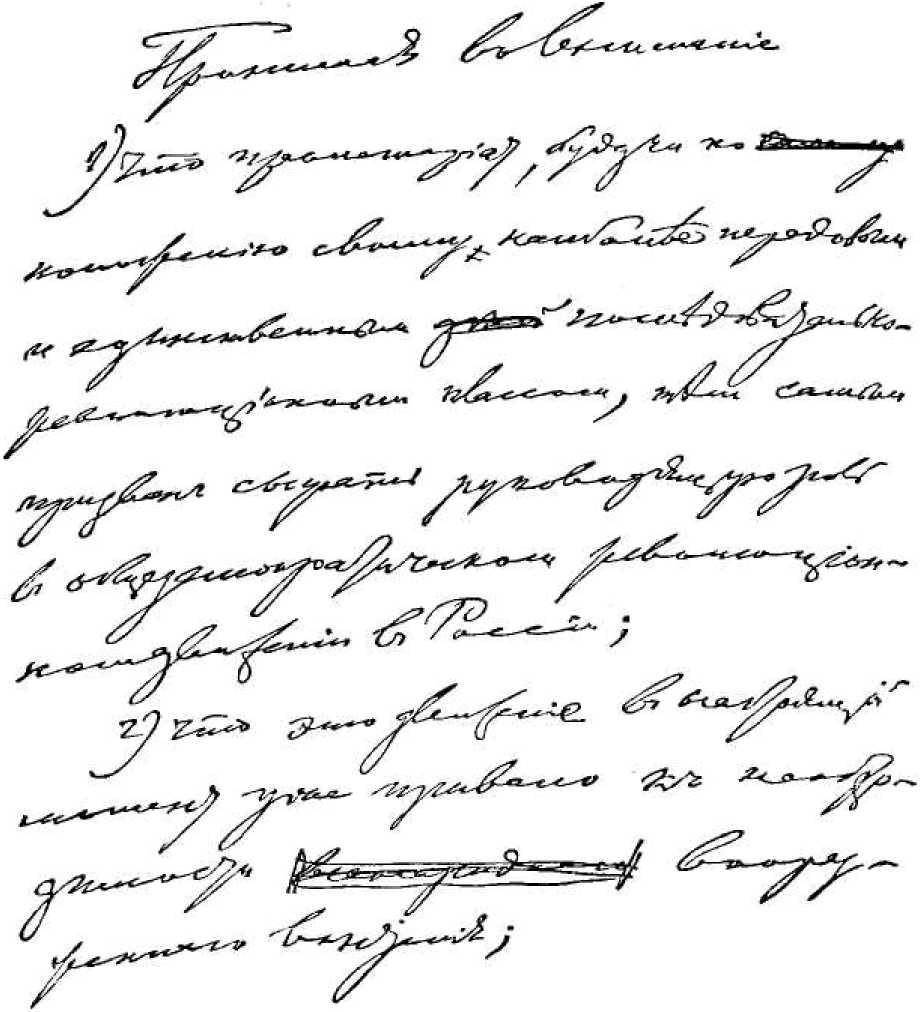 Принимая во вниманіе
1) что пролетаріат, будучи по
положенію своему, наиболѣе передовым
и единственным послѣдовательно-
революціонным классом, тѣм самым
призван сыграть руководящую роль
в общедемократическом революціон-
ном движеніи в Россіи;
2) что это движеніе в настоящій
момент уже привело къ необхо-
димости воору-
женнаго возстанія;